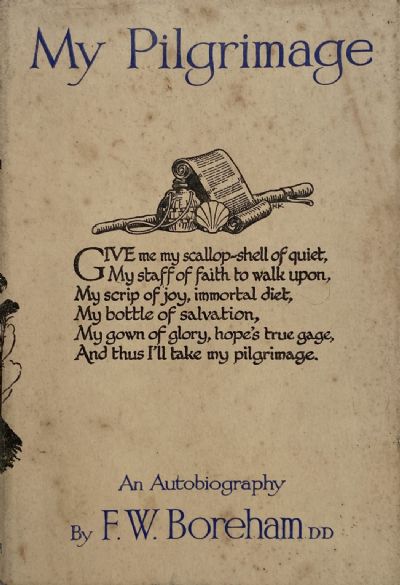 My Pilgrimage
GIVE me my scallop-shell of quiet,
My staff of faith to walk upon,
My scrip of joy, immortal diet,
My bottle of salvation,
My gown of glory, hope's true gage,
And thus I'll take my pilgrimage.
An Autobiography
By F. W. Boreham DD